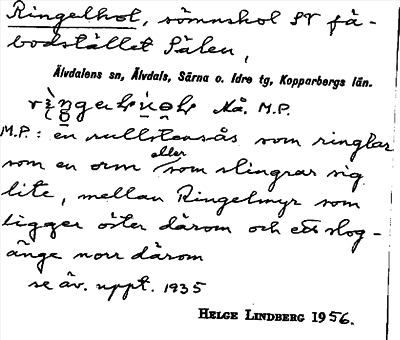 Ringelhol, sömnshol SV fä-
bodstället Sälen,
Älvdalens sn, Älvdals, Särna o. Idre tg, Kopparbergs län.
Må. M.P.
M.P.: en rullstensås som ringlar
som en orm eller som slingrar sig
lite, mellan Ringelmyr som
ligger öster därom och ett slog-
änge norr därom
se äv. uppt. 1935
HELGE LINDBERG 1956.